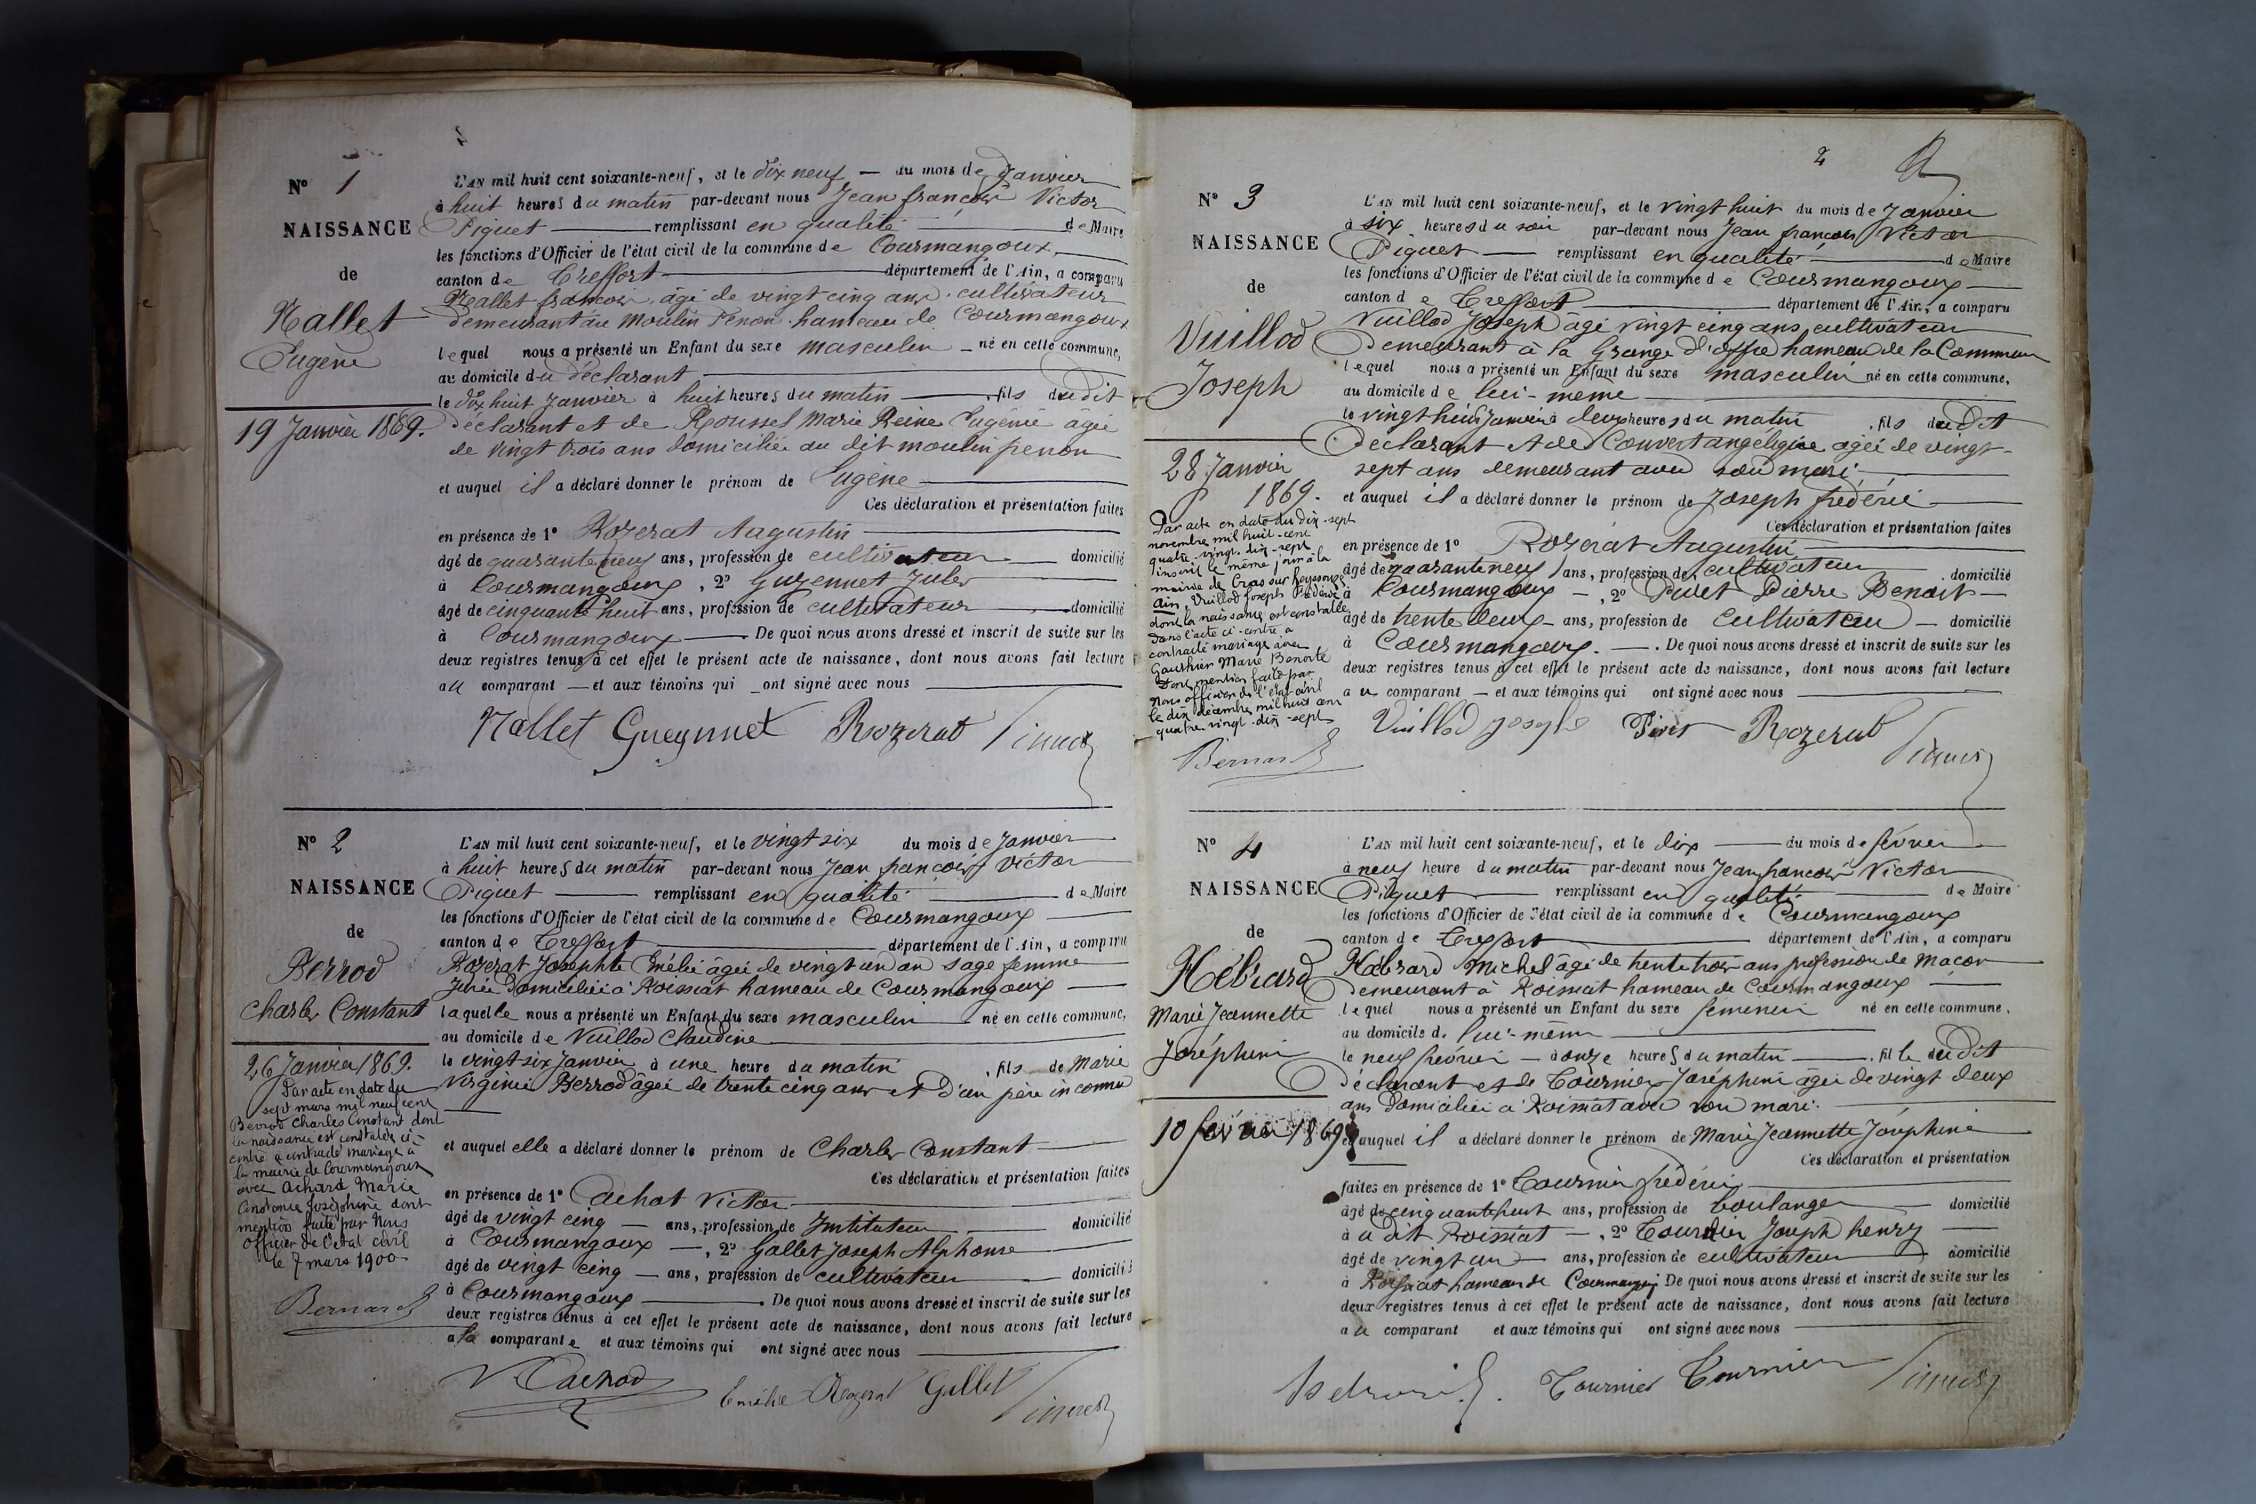 N° 1
NAISSANCE
de
Mallet
Eugène
19 Janvier 1869.
L'AN mil huit cent soixante-neuf, et le dix neuf — du mois de Janvier
à huit heures du matin par-devant nous Jean françois Victor
Piguet remplissant en qualité de Maire
les fonctions d'Officier de l'état civil de la commune de Coursmangoux
canton de Treffort département de l'Ain, a comparu
Mallet françois, âgé de vingt cinq ans, cultivateur
demeurant au Moulin Penon hameau de Coursmangoux
lequel nous a présenté un Enfant du sexe masculin né en cette commune,
au domicile du déclarant
le dix huit Janvier à huit heures du matin, fils du dit
déclarant et de Roussel Marie Reine Eugénie âgée
de vingt trois ans domiciliée au dit moulin penon
et auquel il a déclaré donner le prénom de Eugène
Ces déclaration et présentation faites
en présence de 1° Rozerat Augustin
âgé de quarante neuf ans, profession de cultivateur domicilié
à Coursmangoux, 2° Guyennet Jules
âgé de cinquante huit ans, profession de cultivateur domicilié
à Coursmangoux — De quoi nous avons dressé et inscrit de suite sur les
deux registres tenus à cet effet le présent acte de naissance, dont nous avons fait lecture
au comparant — et aux témoins qui ont signé avec nous
Mallet Gueynnet Rozerat
N° 2
NAISSANCE
de
Berrod
Charles Constant
26 Janvier 1869.
Par acte en date du
sept mars mil neuf cent
Berrod Charles Constant dont
la naissance est constatée ci-
contre a contracté mariage à
la mairie de Courmangoux
avec Achard Marie
Constance Joséphine dont
mention faite par Nous
Officier de l'état civil
le 7 mars 1900
Bernard
L'AN mil huit cent soixante-neuf, et le vingt six du mois de Janvier
à huit heures du matin par-devant nous Jean françois Victor
Piguet remplissant en qualité de Maire
les fonctions d'Officier de l'état civil de la commune de Coursmangoux
canton de Treffort département de l'Ain, a comparu
Rozerat Josephte Emélie âgée de vingt un an sage femme
Jurée domiciliée à Roissiat hameau de Coursmangoux
laquelle nous a présenté un Enfant du sexe masculin né en cette commune,
au domicile de Vuillod Claudine
le vingt six Janvier à une heure du matin, fils de Marie
Virginie Berrod âgée de trente cinq ans et d'un père inconnu
et auquel elle a déclaré donner le prénom de Charles Constant
Ces déclaration et présentation faites
en présence de 1° Cachat Victor
âgé de vingt cinq — ans, profession de Instituteur domicilié
à Coursmangoux —, 2° Gallet Joseph Alphonse
âgé de vingt cinq — ans, profession de cultivateur domicilié
à Coursmangoux. De quoi nous avons dressé et inscrit de suite sur les
deux registres tenus à cet effet le présent acte de naissance, dont nous avons fait lecture
a la comparante et aux témoins qui ont signé avec nous
Emélie Rozerat Gallet
2
N° 3
NAISSANCE
de
Vuillod
Joseph
28 Janvier
1869.
Par acte en date du dix-sept
novembre mil huit-cent
quatre-vingt-dix-sept
inscrit le même jour à la
mairie de Cras sur Reyssouze
Ain, Vuillod Joseph Frédéric
dont la naissance est constatée
dans l'acte ci-contre a
contracté mariage avec
Gauthier Marie Benoite
Dont mention faite par
Nous officier de l'état civil
le dix décembre mil huit cent
quatre-vingt-dix-sept
Bernard
L'AN mil huit cent soixante-neuf, et le vingt huit du mois de Janvier
à six heures du soir par-devant nous Jean françois Victor
Piguet — remplissant en qualité de Maire
les fonctions d'Officier de l'état civil de la commune de Coursmangoux
canton de Treffort département de l'Ain, a comparu
Vuillod Joseph âgé vingt cinq ans, cultivateur
demeurant à la Grange hameau de la Commune
lequel nous a présenté un Enfant du sexe masculin né en cette commune,
au domicile de lui-même
le vingt huit Janvier à deux heures du matin, fils du dit
déclarant et de Couvert angélique âgée de vingt-
sept ans demeurant avec son mari
et auquel il a déclaré donner le prénom de Joseph frédéric
Ces déclaration et présentation faites
en présence de 1° Rozerat Augustin
âgé de quarante neuf ans, profession de cultivateur domicilié
à Coursmangoux —, 2° Pierre Benoit
âgé de trente deux ans, profession de cultivateur — domicilié
à Coursmangoux. — De quoi nous avons dressé et inscrit de suite sur les
deux registres tenus à cet effet le présent acte de naissance, dont nous avons fait lecture
au comparant — et aux témoins qui ont signé avec nous
Vuillod joseph Rozerat
N° 4
NAISSANCE
de
Hébrard
Marie Jeannette
Joséphine
10 février 1869
L'AN mil huit cent soixante-neuf, et le dix du mois de février
à neuf heure du matin par-devant nous Jean francois Victor
Piguet remplissant en qualité de Maire
les fonctions d'Officier de l'état civil de la commune de Coursmangoux
canton de Treffort département de l'Ain, a comparu
Hébrard Michel âgé de trente trois ans profession de Maçon
demeurant à Roissiat hameau de Coursmangoux
lequel nous a présenté un Enfant du sexe feminin né en cette commune,
au domicile de lui-même
le neuf février — à onze heures du matin, fille du dit
déclarant et de Tournier Joséphine âgée de vingt deux
ans domiciliée à Roissiat avec son mari.
et auquel il a déclaré donner le prénom de Marie Jeannette Joséphine
Ces déclaration et présentation
faites en présence de 1° Tournier frédéric
âgé de cinquante huit ans, profession de boulanger domicilié
à u dit Roissiat —, 2° Tournier Joseph henry
âgé de vingt un — ans, profession de cultivateur domicilié
à Roissiat hameau de Coursmangoux De quoi nous avons dressé et inscrit de suite sur les
deux registres tenus à cet effet le présent acte de naissance, dont nous avons fait lecture
au comparant et aux témoins qui ont signé avec nous
Tournier Tournier